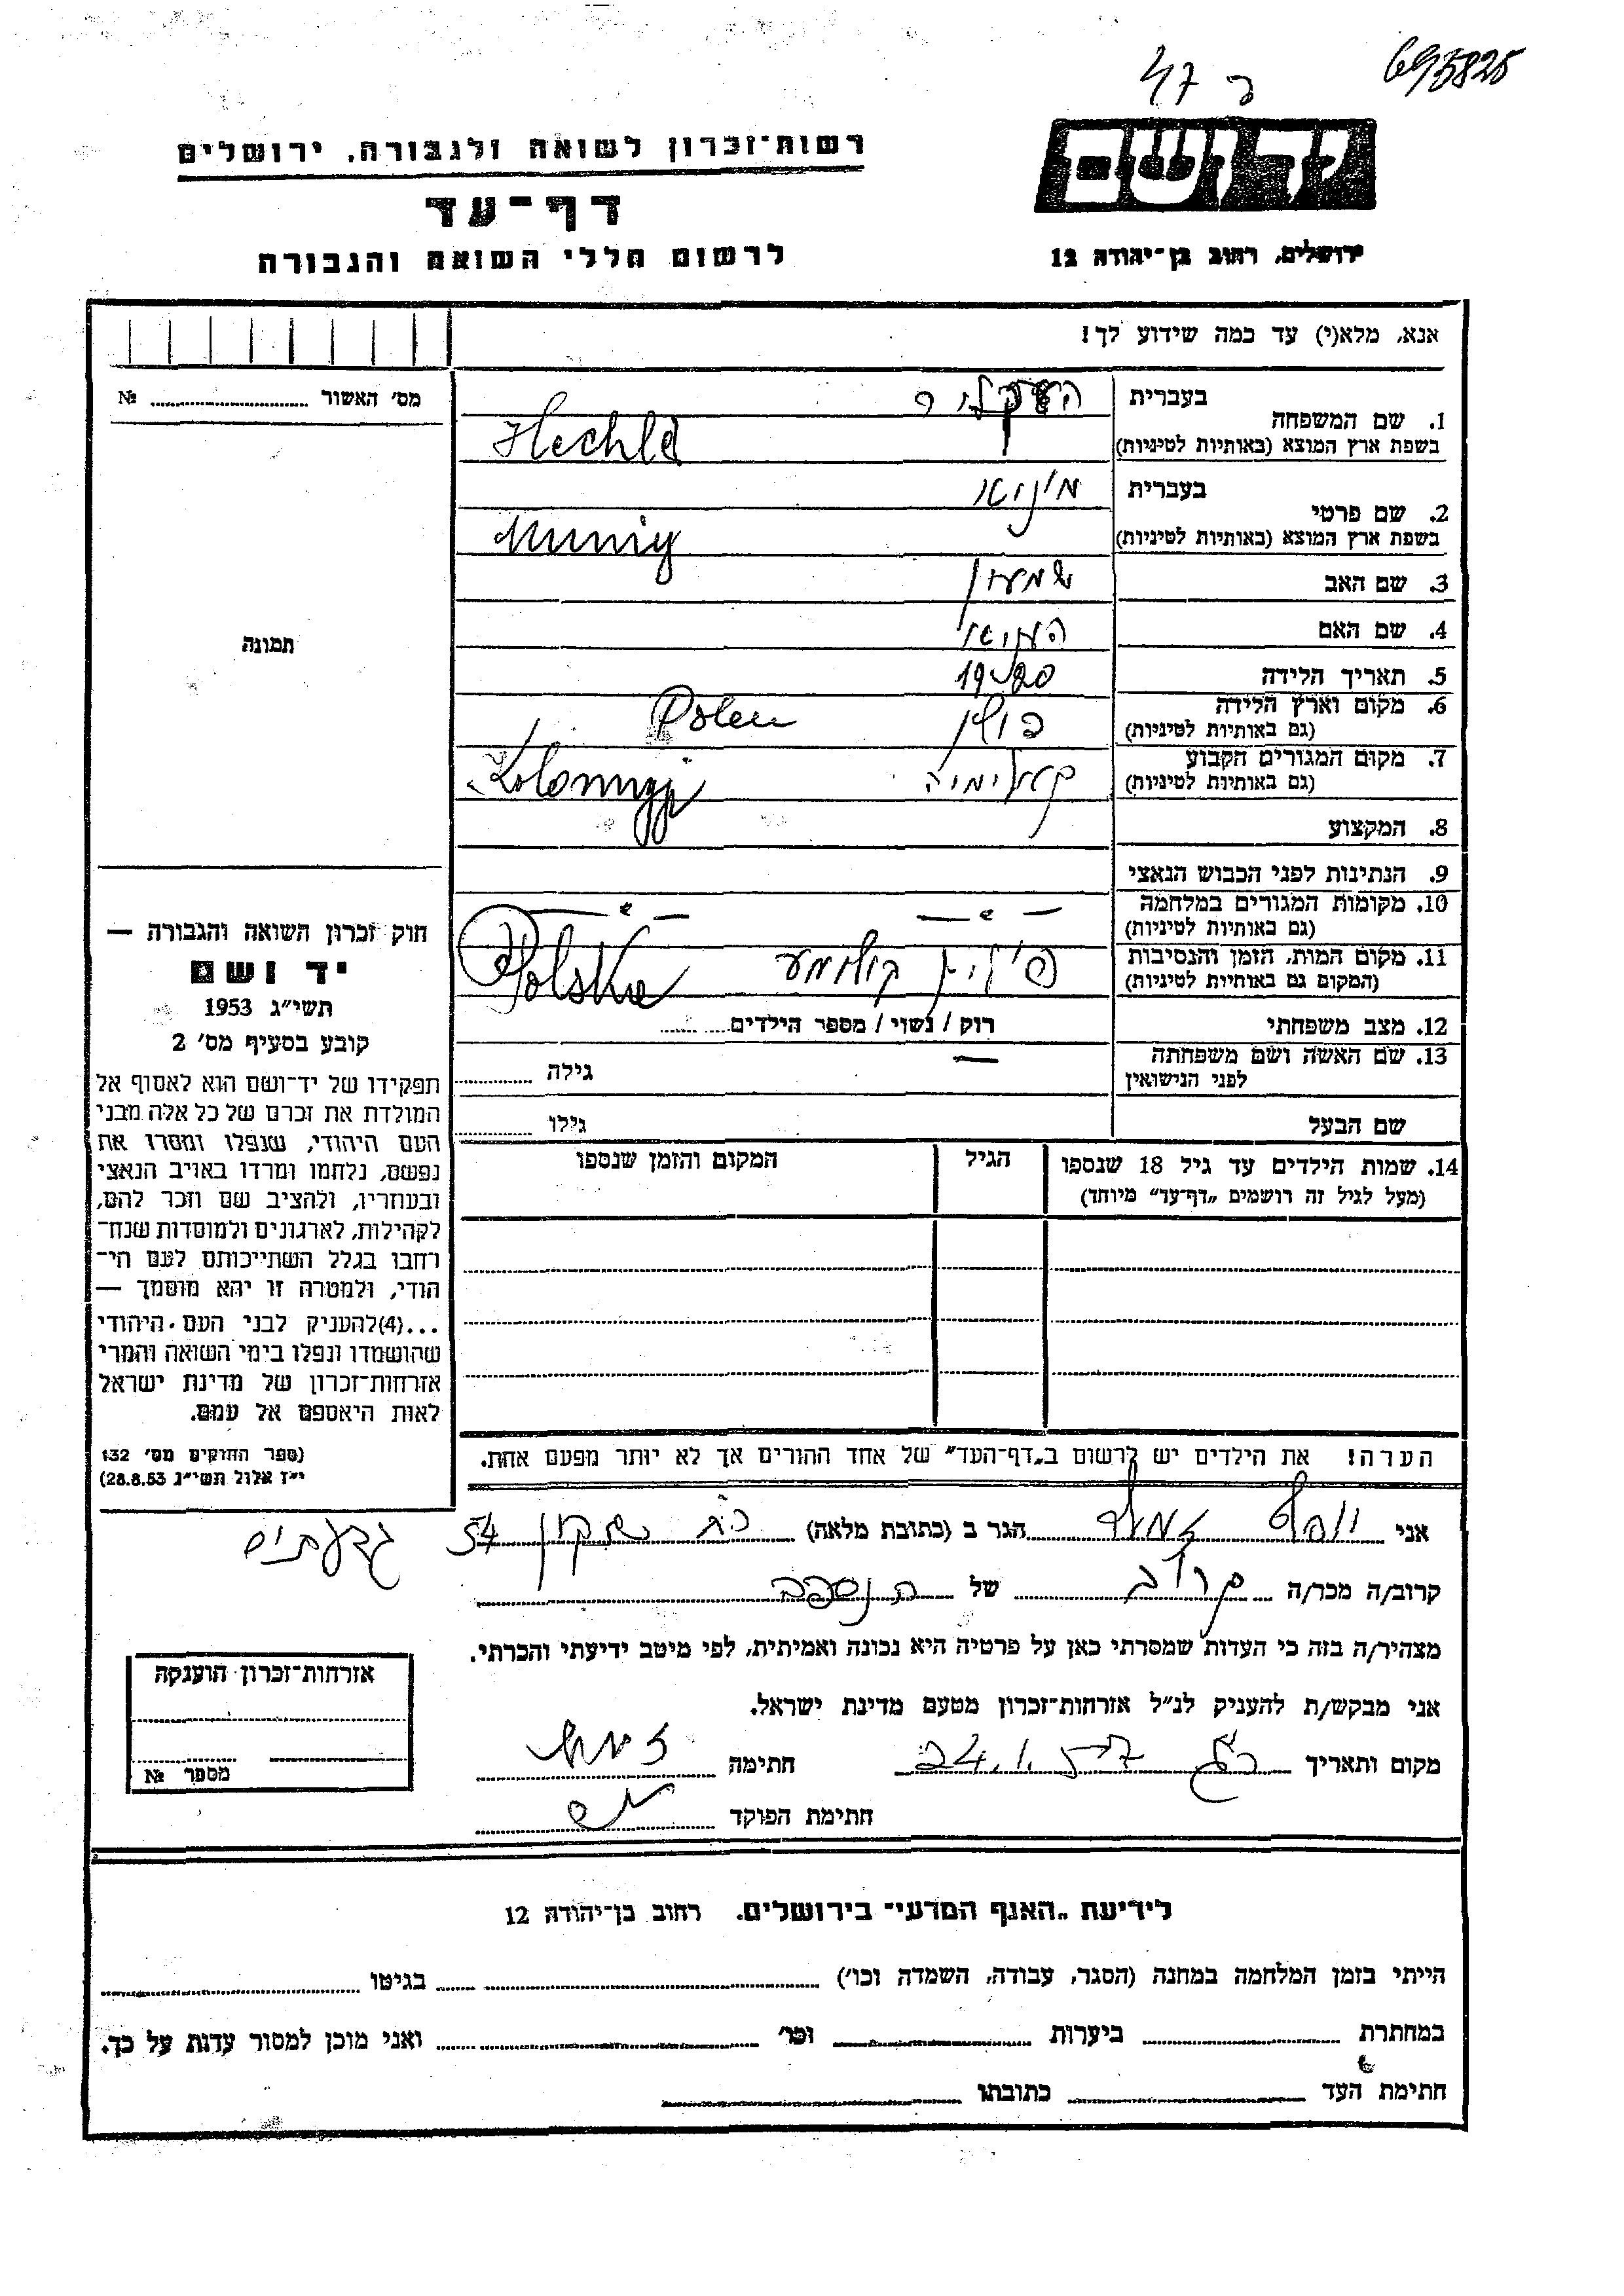 695825
ר 47
יד ושם
רשות־זכרון לשואה ולגבורה, ירושלים
דף־עד
לרשום חללי השואה והגבורה
ירושלים, רחוב בן־יהודה 12
אנא, מלא(י) עד כמה שידוע לך!
מס' האשור № 
1. שם המשפחה
בעברית
בשפת ארץ המוצא (באותיות לטיניות)
2. שם פרטי
בעברית
בשפת ארץ המוצא (באותיות לטיניות)
3. שם האב שמעון
4. שם האם
5. תאריך הלידה
6. מקום וארץ הלידה פולין Polen
(גם באותיות לטיניות)
7. מקום המגורים הקבוע
(גם באותיות לטיניות)
8. המקצוע
9. הנתינות לפני הכבוש הנאצי
10. מקומות המגורים במלחמה
(גם באותיות לטיניות)
11. מקום המות, הזמן והנסיבות Polska
(המקום גם באותיות לטיניות)
12. מצב משפחתי רוק / נשוי / מספר הילדים
13. שם האשה ושם משפחתה — גילה
לפני הנישואין
שם הבעל גילו
14. שמות הילדים עד גיל 18 שנספו הגיל המקום והזמן שנספו
(מעל לגיל זה רושמים „דף־עד" מיוחד)
הערה! את הילדים יש לרשום ב„דף־העד" של אחד ההורים אך לא יותר מפעם אחת.
תמונה
חוק זכרון השואה והגבורה —
יד ושם
תשי"ג 1953
קובע בסעיף מס' 2
תפקידו של יד־ושם הוא לאסוף אל
המולדת את זכרם של כל אלה מבני
העם היהודי, שנפלו ומסרו את
נפשם, נלחמו ומרדו באויב הנאצי
ובעוזריו, ולהציב שם וזכר להם,
לקהילות, לארגונים ולמוסדות שנח־
רחבו בגלל השתייכותם לעם הי־
הודי, ולמטרה זו יהא מוסמך —
...(4)להעניק לבני העם היהודי
שהושמדו ונפלו בימי השואה והמרי
אזרחות־זכרון של מדינת ישראל
לאות היאספם אל עמם.
(ספר החוקים מס' 132
י"ז אלול תשי"ג 28.8.53)
אני יוסף הגר ב (כתובת מלאה) 54 גבעתיים
קרוב/ה מכר/ה קרוב של הנספה
מצהיר/ה בזה כי העדות שמסרתי כאן על פרטיה היא נכונה ואמיתית, לפי מיטב ידיעתי והכרתי.
אני מבקש/ת להעניק לנ"ל אזרחות־זכרון מטעם מדינת ישראל.
מקום ותאריך חתימה
חתימת הפוקד
אזרחות־זכרון הוענקה
מספר №
לידיעת „האגף המדעי" בירושלים, רחוב בן־יהודה 12
הייתי בזמן המלחמה במחנה (הסגר, עבודה, השמדה וכו') בגיטו
במחתרת ביערות וכו' ואני מוכן למסור עדות על כך.
חתימת העד כתובתו